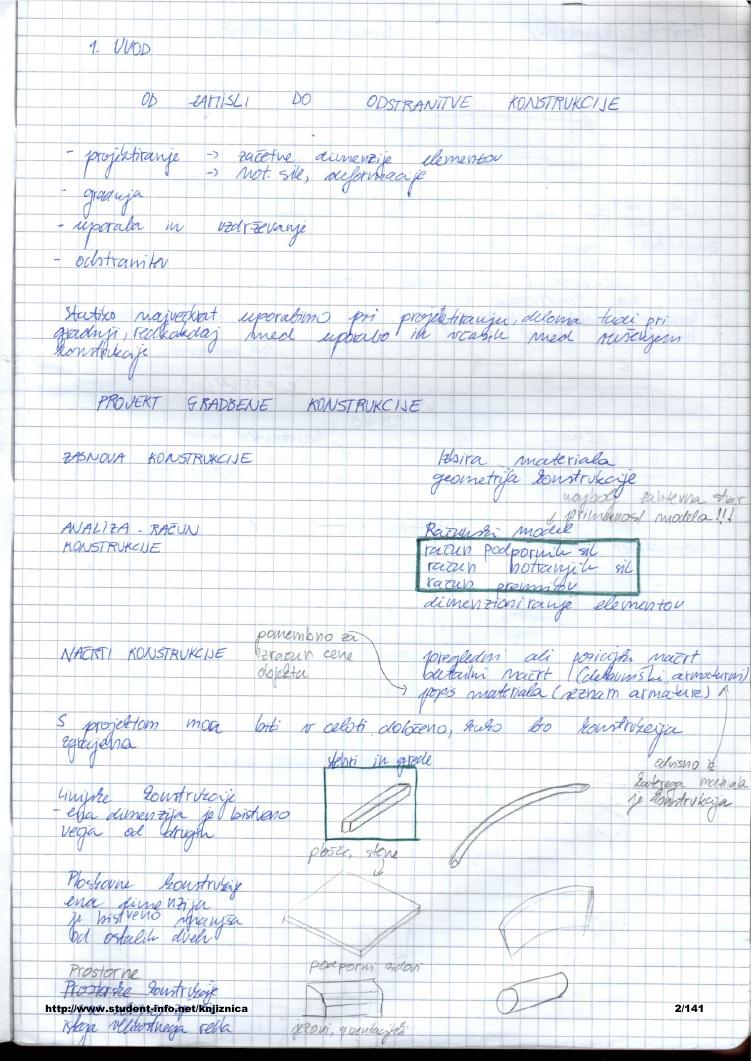 1. UVOD
OD ZAMISLI DO ODSTRANITVE KONSTRUKCIJE
- projektiranje → začetne dimenzije elementov
→ not. sile, deformacije
- gradnja
- uporaba in vzdrževanje
- odstranitev
Statiko največkrat uporabimo pri projektiranju, deloma tudi pri
gradnji, redkokdaj med uporabo in včasih med rušenjem
konstrukcije
PROJEKT GRADBENE KONSTRUKCIJE
ZASNOVA KONSTRUKCIJE
Izbira materiala
geometrija konstrukcije
najbolj zahtevna stvar
primernost modela!!!
ANALIZA - RAČUN
KONSTRUKCIJE
Računski model
račun podpornih sil
račun notranjih sil
račun premikov
dimenzioniranje elementov
NAČRTI KONSTRUKCIJE
pomembno za
izračun cene
objekta
pregledni ali pozicijski načrt
detajlni načrt (delavniški, armaturni)
popis materiala (seznam armature)
S projektom mora biti v celoti določeno, kako bo konstrukcija
zgrajena
odvisno iz
katerega materiala
je konstrukcija
stebri in grede
Linijske konstrukcije
- ena dimenzija je bistveno
večja od drugih
plošče, stene
Ploskovne konstrukcije
ena dimenzija
je bistveno manjša
od ostalih dveh
Prostorne
Prostorske konstrukcije
podporni zidovi
istega velikostnega reda
http://www.student-info.net/knjiznica
2/141